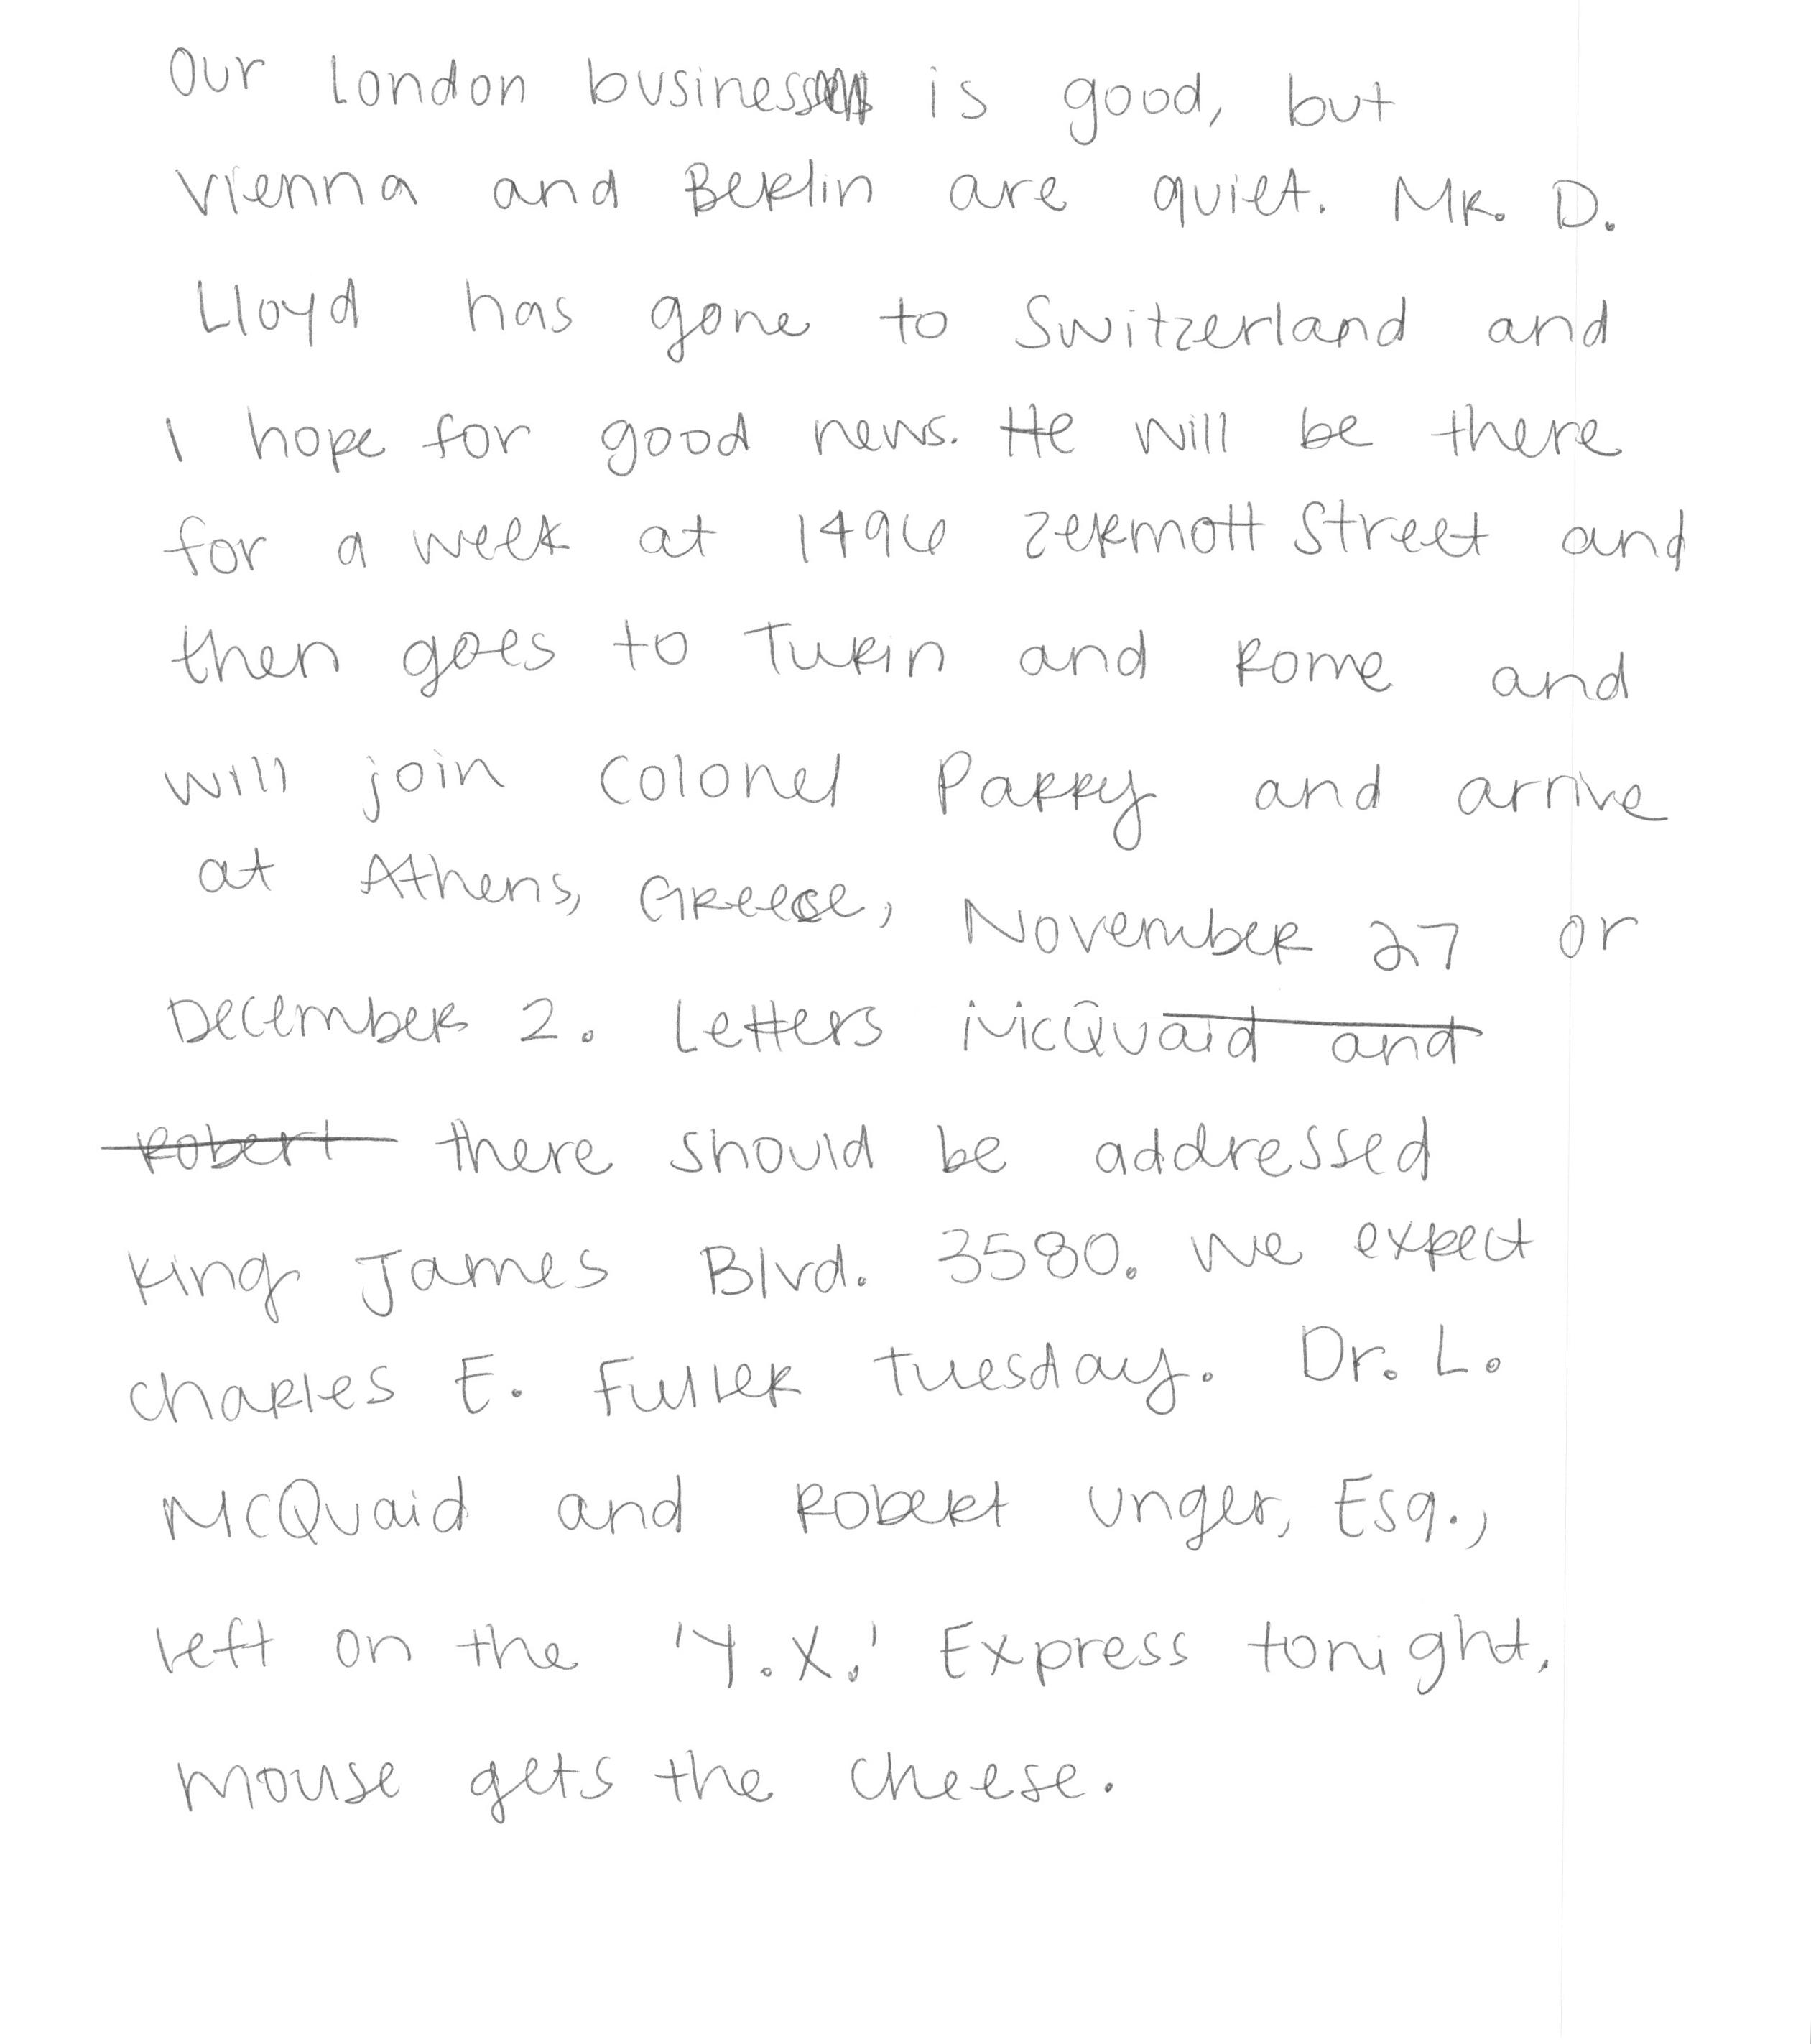 Our London business is good, but
Vienna and Berlin are quiet. Mr. D.
Lloyd has gone to Switzerland and
I hope for good news. He will be there
for a week at 1496 Zermott Street and
then goes to Turin and Rome and
will join Colonel Parry and arrive
at Athens, Greece, November 27 or
December 2. Letters McQuaid and
Robert there should be addressed
King James Blvd. 3580. We expect
Charles E. Fuller Tuesday. Dr. L.
McQuaid and Robert Unger, Esq.,
left on the 'Y.X.' Express tonight.
Mouse gets the cheese.